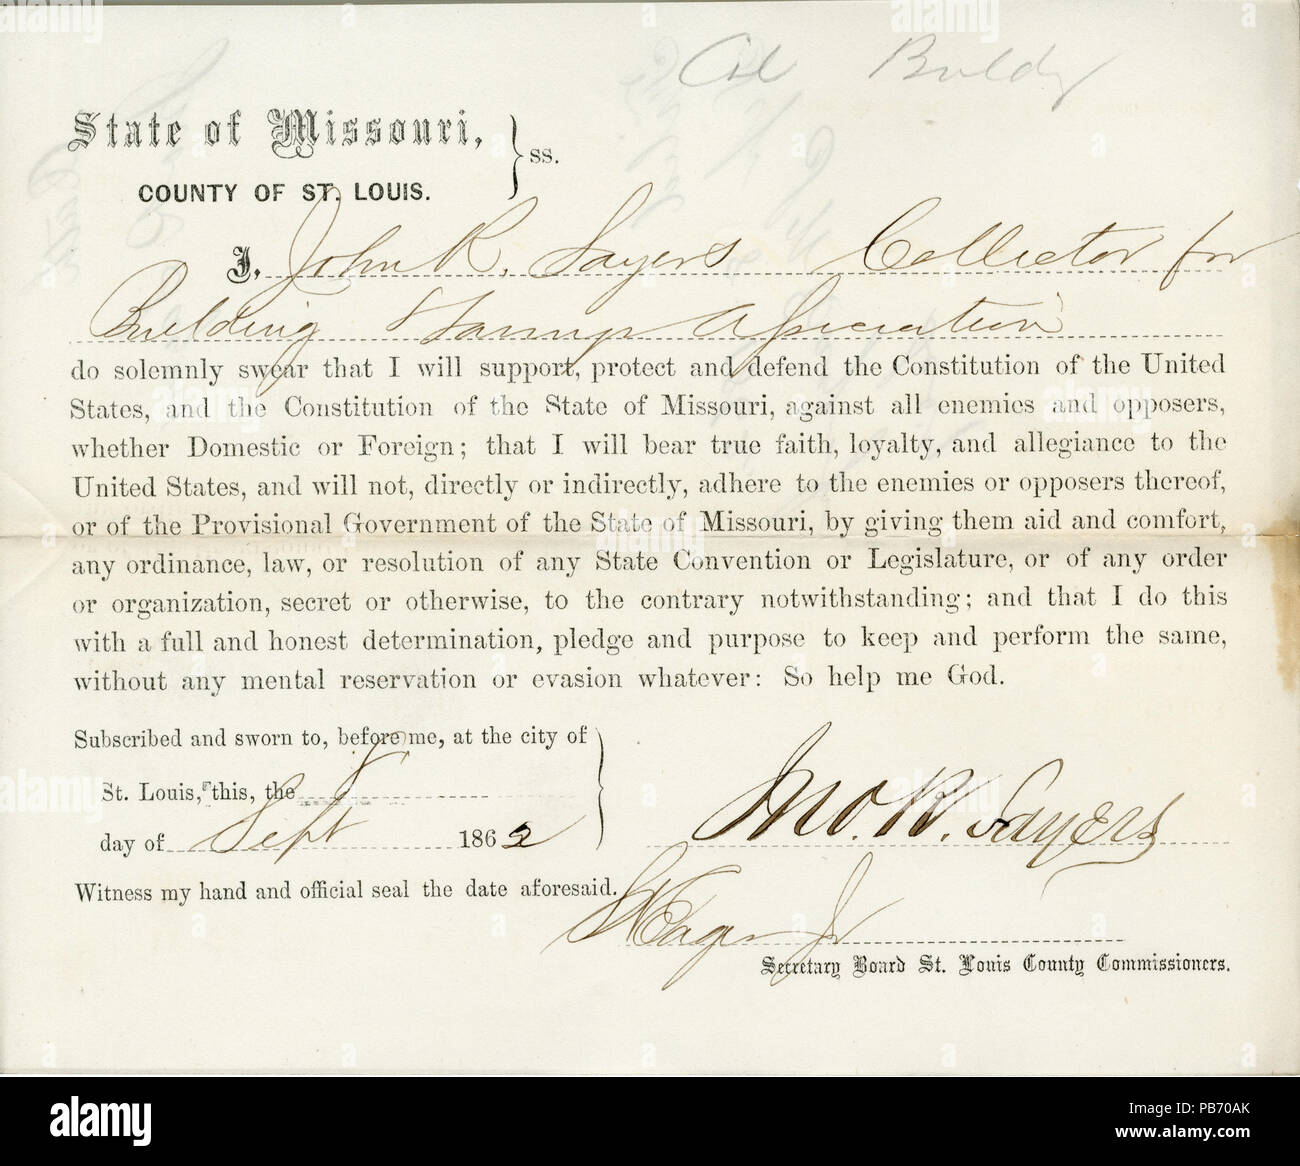 Col Buldg
State of Missouri,
COUNTY OF ST. LOUIS. } ss.
I, John R. Sayers Collector for
Building & Savings Association
do solemnly swear that I will support, protect and defend the Constitution of the United
States, and the Constitution of the State of Missouri, against all enemies and opposers,
whether Domestic or Foreign; that I will bear true faith, loyalty, and allegiance to the
United States, and will not, directly or indirectly, adhere to the enemies or opposers thereof,
or of the Provisional Government of the State of Missouri, by giving them aid and comfort,
any ordinance, law, or resolution of any State Convention or Legislature, or of any order
or organization, secret or otherwise, to the contrary notwithstanding; and that I do this
with a full and honest determination, pledge and purpose to keep and perform the same,
without any mental reservation or evasion whatever: So help me God.
Subscribed and sworn to, before me, at the city of
St. Louis, this, the 8
day of Sept 1862
Jno. R. Sayers
Witness my hand and official seal the date aforesaid.
Jr
Secretary Board St. Louis County Commissioners.
alamy
Image ID: PB70AK
www.alamy.com